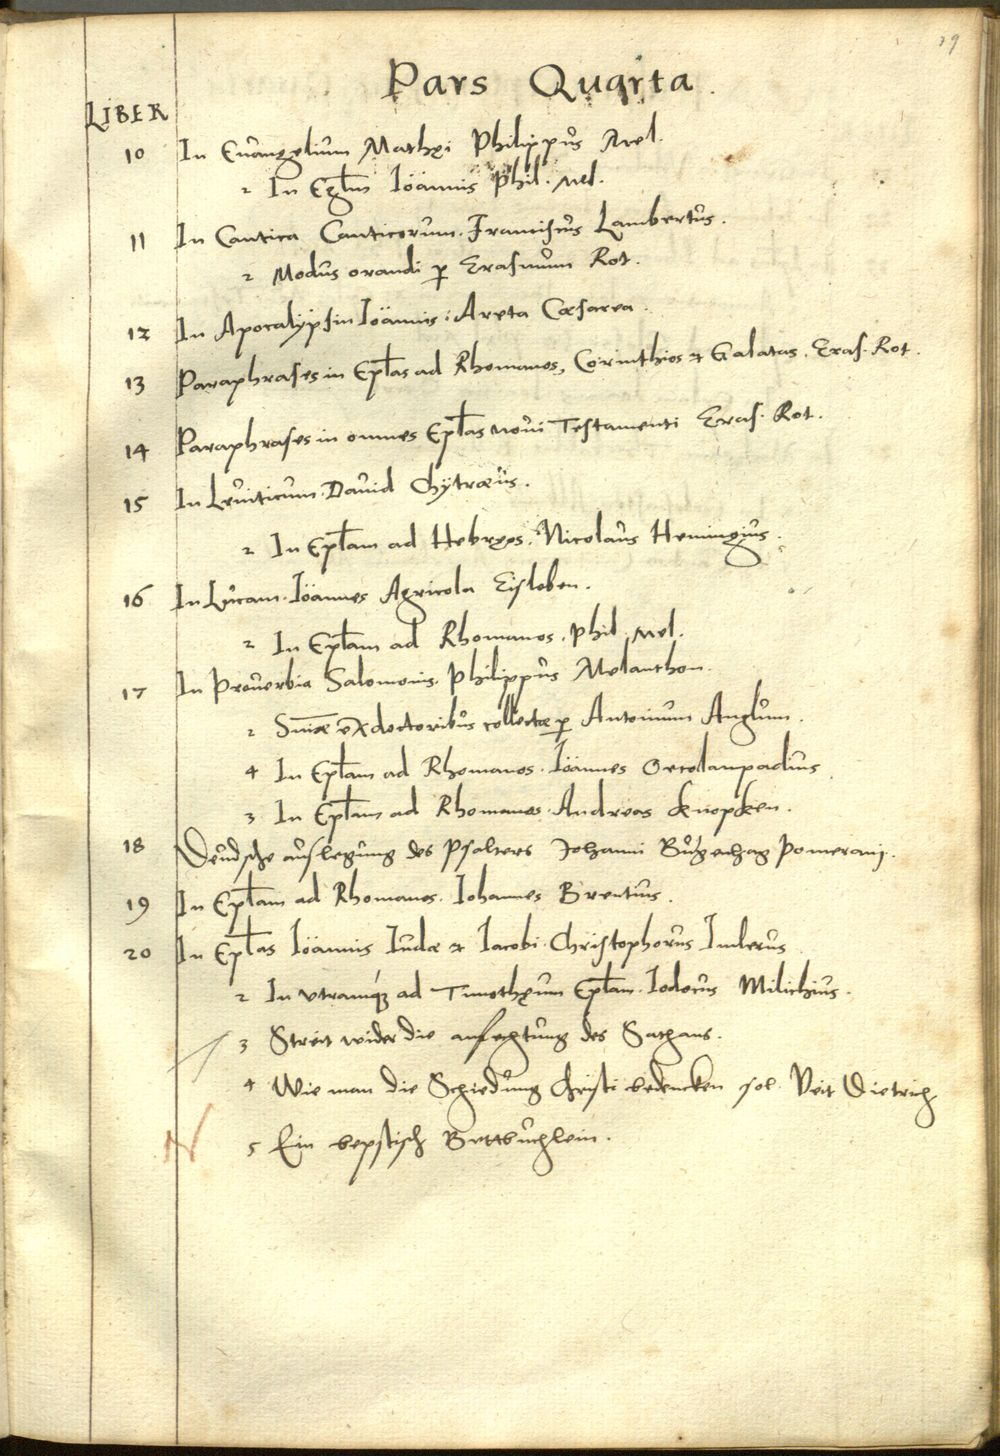 39
Pars Quarta.
LIBER
10 In Euangelium Mathęi Philippus Mel.
2 In Eglm Iöannis Phil. Mel.
11 In Cantica Canticorum. Franciscus Lambertus.
2 Modus orandi p Erasmum Rot.
12 In Apocalÿpsin Iöannis: Areta Cæsarea.
13 Paraphrases in Eplas ad Rhomanos, Corinthios et Galatas. Eras. Rot.
14 Paraphrases in omnes Eplas noui Testamenti Eras. Rot.
15 In Leuiticum. Dauid Chÿtræus.
2 In Eplam ad Hebręos. Nicolaus Hemingius.
16 In Lucam. Iöannes Agricola Eisleben.
2 In Eplam ad Rhomanos. Phil. Mel.
17 In Prouerbia Salomonis. Philippus Melanthon.
2 Sniæ ex doctoribus collectæ p Antonium Anglum.
4 In Eplam ad Rhomanos. Iöannes Oecolampadius.
3 In Eplam ad Rhomanos. Andreas Knopken.
18 Deudsche auslegung des Psalters Johanni Bugenhag Pomeranj.
19 In Eplam ad Rhomanos. Iohannes Brentius.
20 In Eplas Iöannis Iudæ et Iacobi. Christophorus Imlerus
2 In vtramq́ꝫ ad Timothęum Eplam. Iodocus Milichius.
3 Streit wider die anfechtung des Sathans.
4 Wie man die Schiedung Christi bedencken sol. Veit Dietrich
5 Ein bepstisch Bettbuchlein.